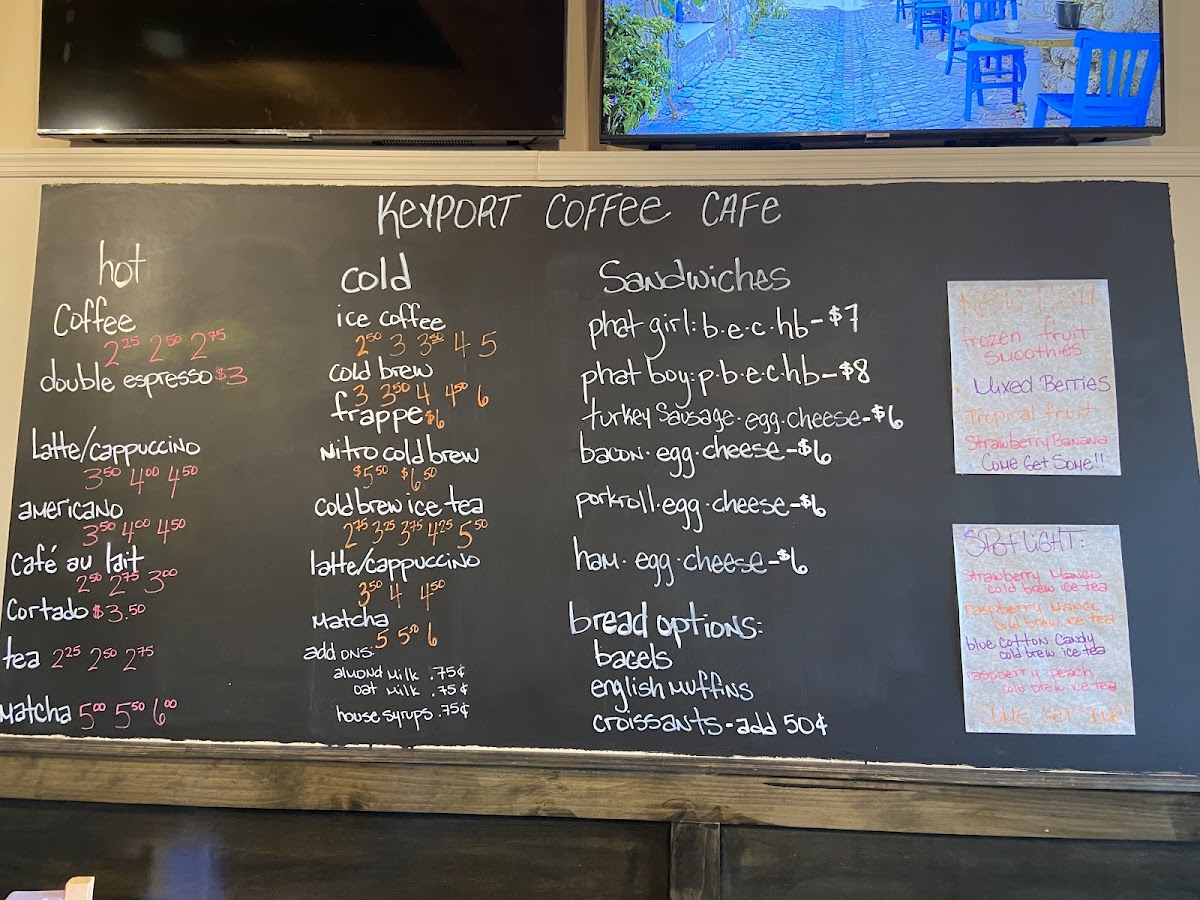 KEYPORT COFFEE CAFE
hot
Coffee
2.25 2.50 2.75
double espresso $3
Latte/cappuccino
3.50 4.00 4.50
americano
3.50 4.00 4.50
Café au lait
2.50 2.75 3.00
Cortado $3.50
tea 2.25 2.50 2.75
Matcha 5.00 5.50 6.00
cold
ice coffee
2.50 3 3.50 4 5
cold brew
3 3.50 4 4.50 6
frappe $6
Nitro cold brew
$5.50 $6.50
cold brew ice tea
2.75 3.25 3.75 4.25 5.50
latte/cappuccino
3.50 4 4.50
Matcha
5 5.50 6
add ons:
almond milk .75¢
oat milk .75¢
house syrups .75¢
Sandwiches
phat girl: b.e.c.hb - $7
phat boy: p.b.e.c.hb - $8
turkey Sausage.egg.cheese - $6
bacon.egg.cheese - $6
porkroll.egg.cheese - $6
ham.egg.cheese - $6
bread options:
bagels
english muffins
croissants - add 50¢
frozen fruit
smoothies
Mixed Berries
Tropical fruit
Strawberry Banana
Come Get Some!!
SPOTLIGHT:
Strawberry Mango
cold brew ice tea
raspberry Mango
cold brew ice tea
blue cotton candy
cold brew ice tea
raspberry peach
cold brew ice tea
COME GET SOME!!